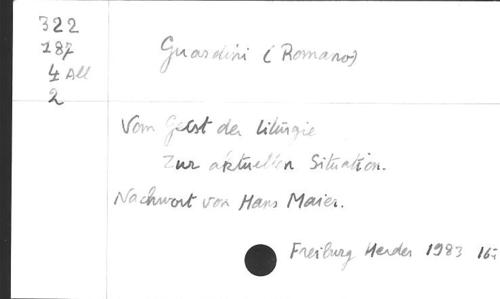 322
187
4 All
2
Guardini (Romano)
Vom Geist der Liturgie
Zur aktuellen Situation.
Nachwort von Hans Maier.
Freiburg Herder 1983 16: